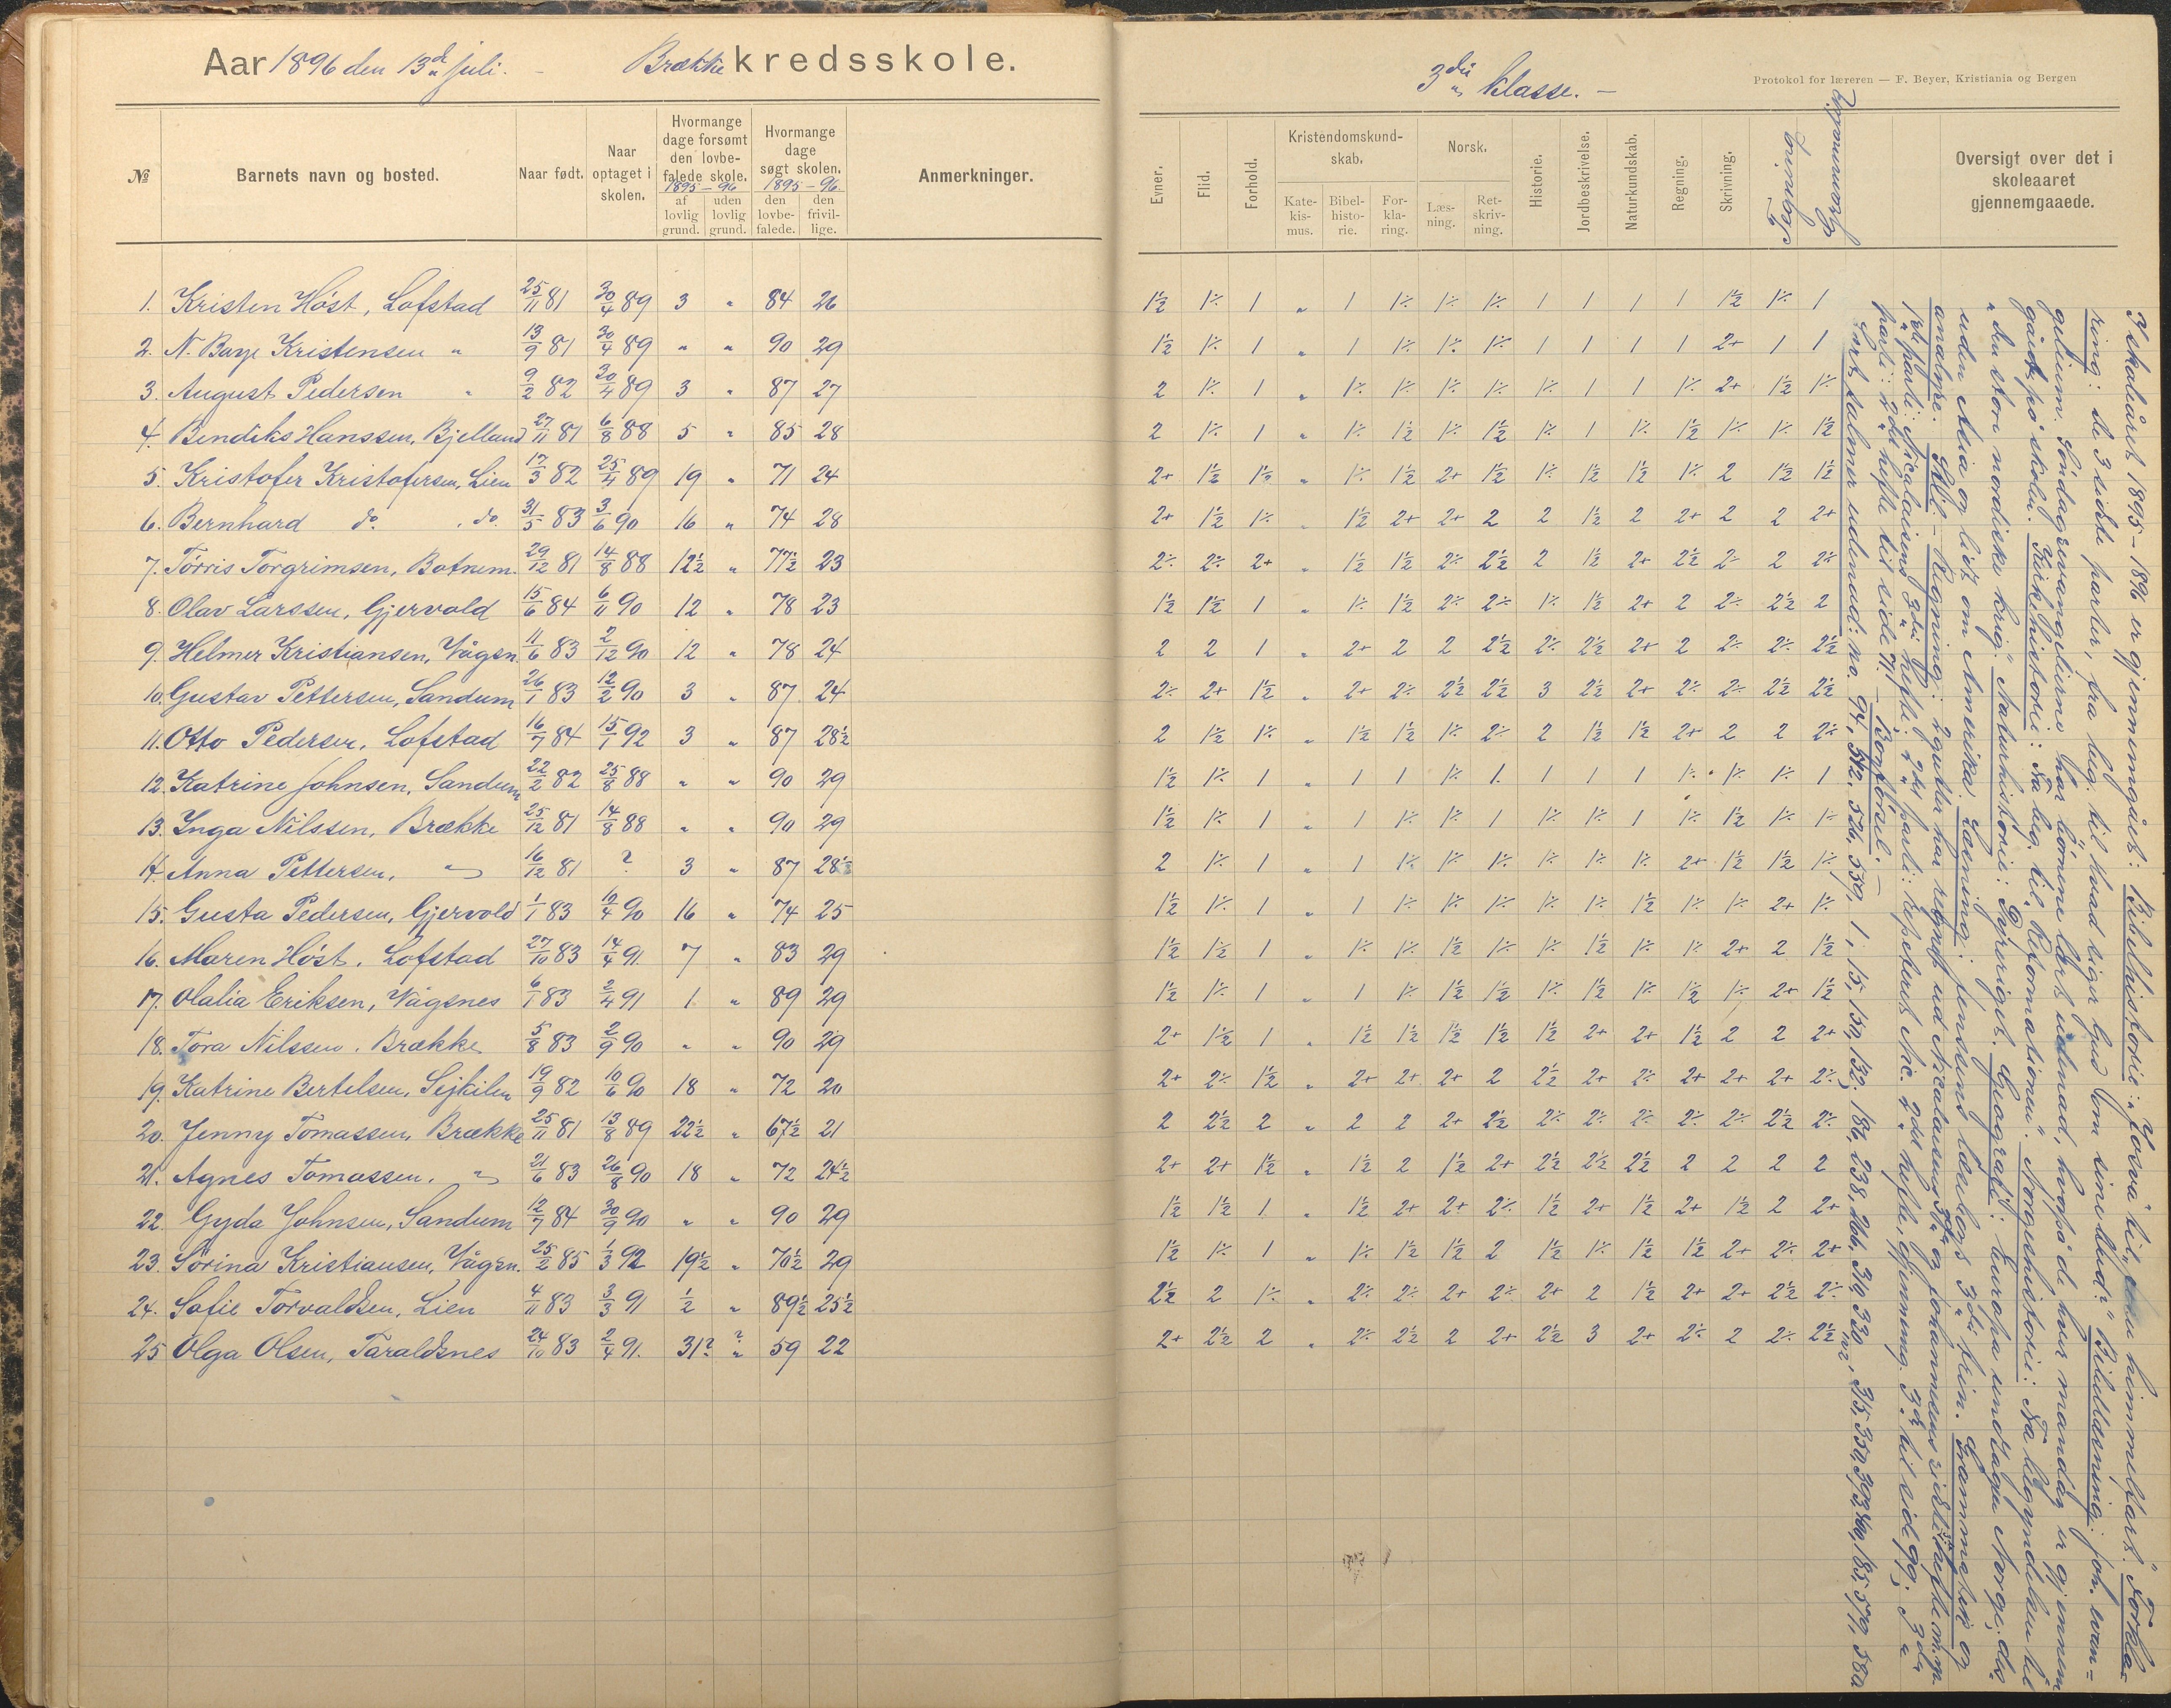 Aar 1896 den 13de juli. - Brække kredsskole.
3die klasse. -
Protokol for læreren — F. Beyer, Kristiania og Bergen
№ Barnets navn og bosted. Naar født. Naar optaget i skolen. Hvormange dage forsømt den lovbefalede skole. 1895-96 af lovlig grund. uden lovlig grund. Hvormange dage søgt skolen. 1895-96. den lovbefalede. den frivillige. Anmerkninger.
Evner. Flid. Forhold. Kristendomskundskab. Katekismus. Bibelhistorie. Forklaring. Norsk. Læsning. Retskrivning. Historie. Jordbeskrivelse. Naturkundskab. Regning. Skrivning. Tegning Oversigt over det i skoleaaret gjennemgaaede.
1. Kristen Høst, Lofstad 25/11 81 30/4 89 3 " 84 26 1½ 1÷ 1 " 1 1÷ 1÷ 1÷ 1 1 1 1 1½ 1÷ 1
2. N. Baye Kristensen " 13/9 81 30/4 89 " " 90 29 1½ 1÷ 1 " 1 1÷ 1÷ 1÷ 1 1 1 1 2+ 1 1
3. August Pedersen " 9/2 82 30/4 89 3 " 87 27 2 1÷ 1 " 1÷ 1÷ 1÷ 1÷ 1÷ 1 1 1÷ 2+ 1½ 1÷
4. Bendiks Hanssen, Bjelland 27/11 81 6/8 88 5 " 85 28 2 1÷ 1 " 1÷ 1½ 1÷ 1½ 1÷ 1 1÷ 1½ 1÷ 1÷ 1½
5. Kristofer Kristofersen, Lien 17/3 82 25/4 89 19 " 71 24 2+ 1½ 1½ " 1÷ 1½ 2+ 1½ 1÷ 1½ 1½ 1÷ 2 1½ 1½
6. Bernhard do. , do. 31/5 83 3/6 90 16 " 74 28 2+ 1½ 1÷ " 1½ 2+ 2+ 2 2 1½ 2 2+ 2 2 2+
7. Tørris Torgrimsen, Botnem. 29/12 81 14/8 88 12½ " 77½ 23 2÷ 2÷ 2+ " 1½ 1½ 2÷ 2½ 2 1½ 2+ 2½ 2÷ 2 2÷
8. Olav Larssen, Gjervold 15/6 84 6/11 90 12 " 78 23 1½ 1½ 1 " 1÷ 1½ 2÷ 2÷ 1÷ 1½ 2+ 2 2÷ 2½ 2
9. Helmer Kristiansen, Vågsn. 11/6 83 2/12 90 12 " 78 24 2 2 1 " 2+ 2 2 2½ 2÷ 2½ 2+ 2 2÷ 2÷ 2½
10. Gustav Pettersen, Sandum 26/1 83 12/2 90 3 " 87 24 2÷ 2+ 1½ " 2+ 2÷ 2½ 2½ 3 2½ 2+ 2÷ 2÷ 2½ 2½
11. Otto Pedersen, Lofstad 16/7 84 15/1 92 3 " 87 28½ 2 1½ 1÷ " 1½ 1½ 1÷ 2÷ 2 1½ 1½ 2+ 2 2 2÷
12. Katrine Johnsen, Sandum 22/2 82 25/8 88 " " 90 29 1½ 1÷ 1 " 1 1 1÷ 1 1 1 1 1÷ 1÷ 1÷ 1
13. Inga Nilssen, Brække 25/12 81 14/8 88 " " 90 29 1½ 1÷ 1 " 1 1÷ 1÷ 1 1÷ 1÷ 1 1÷ 1½ 1÷ 1÷
14. Anna Pettersen, " 16/12 81 ? 3 " 87 28½ 2 1÷ 1 " 1 1÷ 1÷ 1÷ 1÷ 1÷ 1÷ 2+ 1½ 1½ 1÷
15. Gusta Pedersen, Gjervold 1/1 83 12/4 90 16 " 74 25 1½ 1÷ 1 " 1 1÷ 1÷ 1÷ 1÷ 1÷ 1½ 1÷ 1÷ 2+ 1÷
16. Maren Høst, Lofstad 27/10 83 14/4 91. 7 " 83 29 1½ 1½ 1 " 1÷ 1÷ 1½ 1÷ 1÷ 1½ 1÷ 1÷ 2+ 2 1½
17. Olalia Eriksen, Vågsnes 6/1 83 2/4 91 1. " 89 29 1½ 1÷ 1 " 1 1÷ 1½ 1½ 1÷ 1½ 1÷ 1½ 1÷ 2+ 1½
18. Tora Nilssen. Brække 5/8 83 2/9 90 " " 90 29 2+ 1½ 1 " 1½ 1½ 1½ 1½ 1½ 2+ 2+ 1½ 2 2 2+
19. Katrine Bertelsen, Sejkilen 19/9 82 10/6 90 18 " 72 20 2+ 2÷ 1½ " 2+ 2+ 2+ 2 2½ 2+ 2÷ 2+ 2+ 2+ 2÷
20. Jenny Tomassen, Brække 25/11 81 13/8 89 22½ " 67½ 21 2 2½ 2 " 2 2 2+ 2½ 2÷ 2÷ 2÷ 2÷ 2÷ 2½ 2÷
21. Agnes Tomassen. " 21/6 83 26/8 90 18 " 72 24½ 2+ 2+ 1½ " 1½ 2 1½ 2+ 2½ 2½ 2½ 2 2 2 2
22. Gyda Johnsen, Sandum 12/7 84 30/9 90 " " 90 29 1½ 1½ 1 " 1½ 2+ 2+ 2÷ 1½ 2+ 1½ 2+ 1½ 2 2+
23. Sørina Kristiansen, Vågsn. 25/2 85 1/3 92 19½ " 70½ 29 1½ 1÷ 1 " 1÷ 1½ 1½ 2 1½ 1÷ 1½ 1½ 2+ 2÷ 2+
24. Sofie Torvaldsen, Lien 4/11 83 3/3 91 ½ " 89½ 25½ 2½ 2 1÷ " 2÷ 2÷ 2+ 2÷ 2+ 2 1½ 2+ 2+ 2½ 2÷
25 Olga Olsen, Taraldsnes 24/10 83 2/4 91. 31? ? " 59 22 2+ 2½ 2 " 2÷ 2½ 2 2+ 2½ 3 2+ 2÷ 2 2÷ 2½
I skoleåret 1895-1896 er gjennemgået: Bibelhistorie: "Josva" til himmelfart." Forkla-
ring: de 3 sidste parter, fra beg. til hvad siger Gud om sine bud." Bibellæsning: Joh. evan-
gelium. Søndagsevangelierne har børnene lært udenad, hvorpå de hver mandag er gjennem
gåede på skolen. Kirkehistorie: Fra beg. til "Reformationen". Norgeshistorie: Fra begyndelsen til
"den store nordiske krig." Naturhistorie: Pattedyr. Geografi: Europa undtagen Norge, des-
uden Asia og lidt om Amerika. Læsning: Jensens læsebog 3die trin. Grammatik og
analyse. Skr. - Regning: 2 gutter har regnet ud Nicolaisens 3die og Johannesens
parti: Nicolaisens 3die hefte. 2det parti: repeteret Nic. 2det hefte, gjennemg. 3die til side 99; 3die
parti: 2det hefte til side 71. - Bogførsel. -
Lært salmer udenad: no. 94, 512, 526, 559, 1, 15, 152, 132, 186, 238, 266, 319, 330, 315, 352, 393, 185, 579, 580